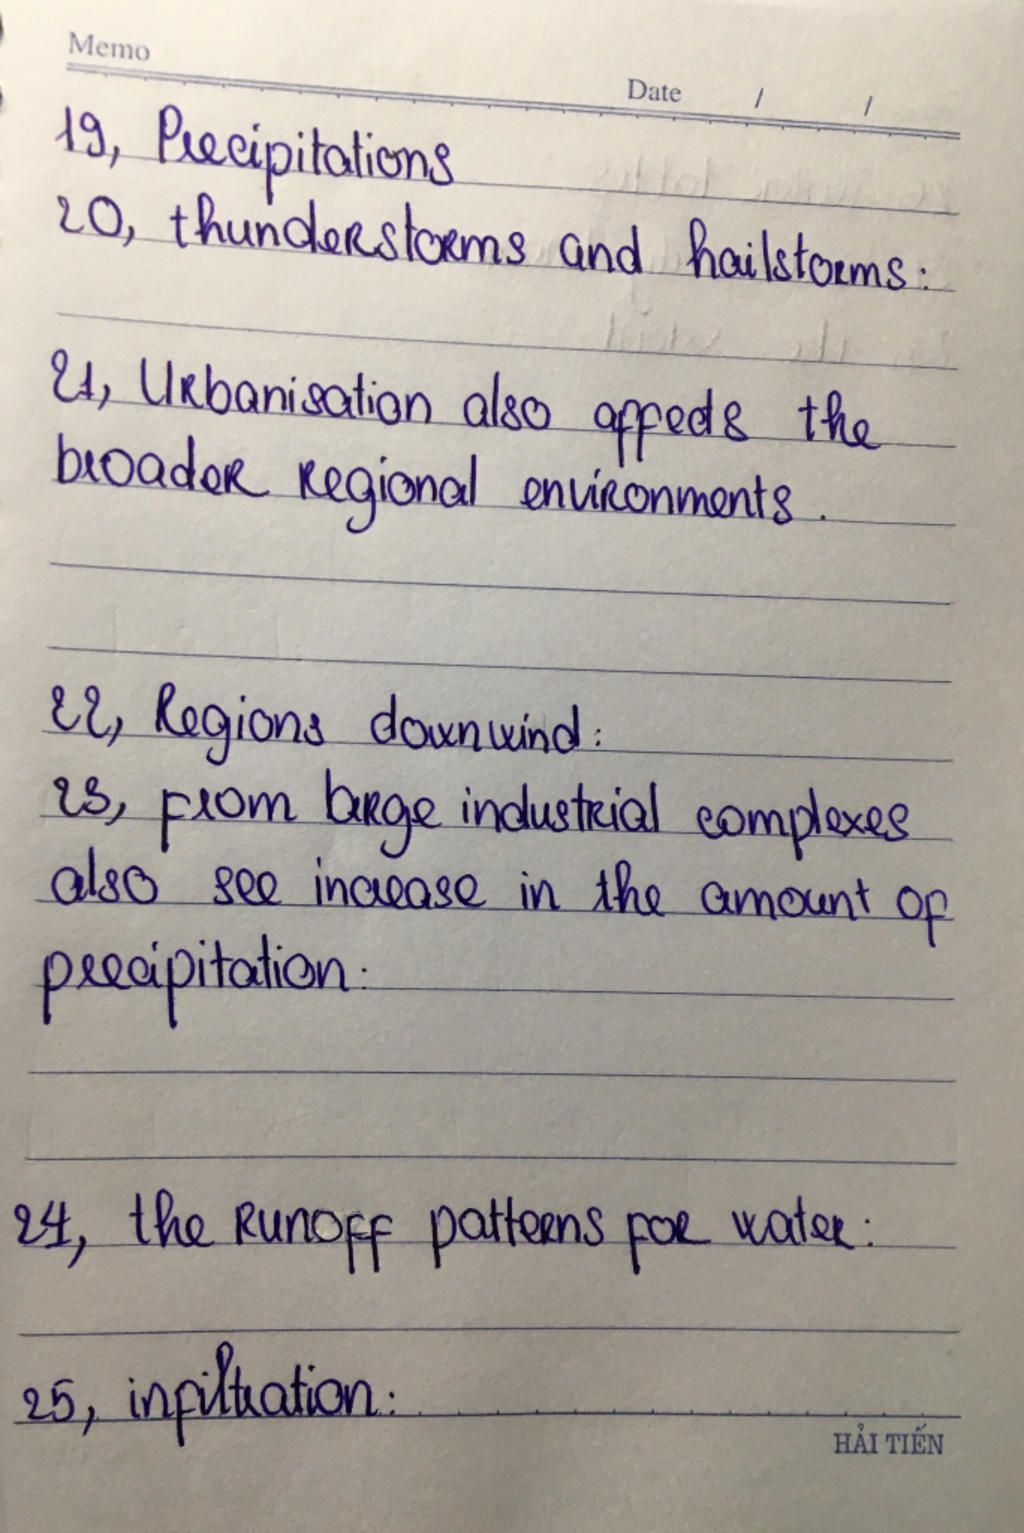 Memo
Date / /
19, Precipitations
20, thunderstorms and hailstorms:
21, Urbanisation also affects the
broader regional environments.
22, Regions downwind:
23, from large industrial complexes
also see increase in the amount of
precipitation:
24, the runoff patterns for water:
25, infiltration:
HẢI TIẾN